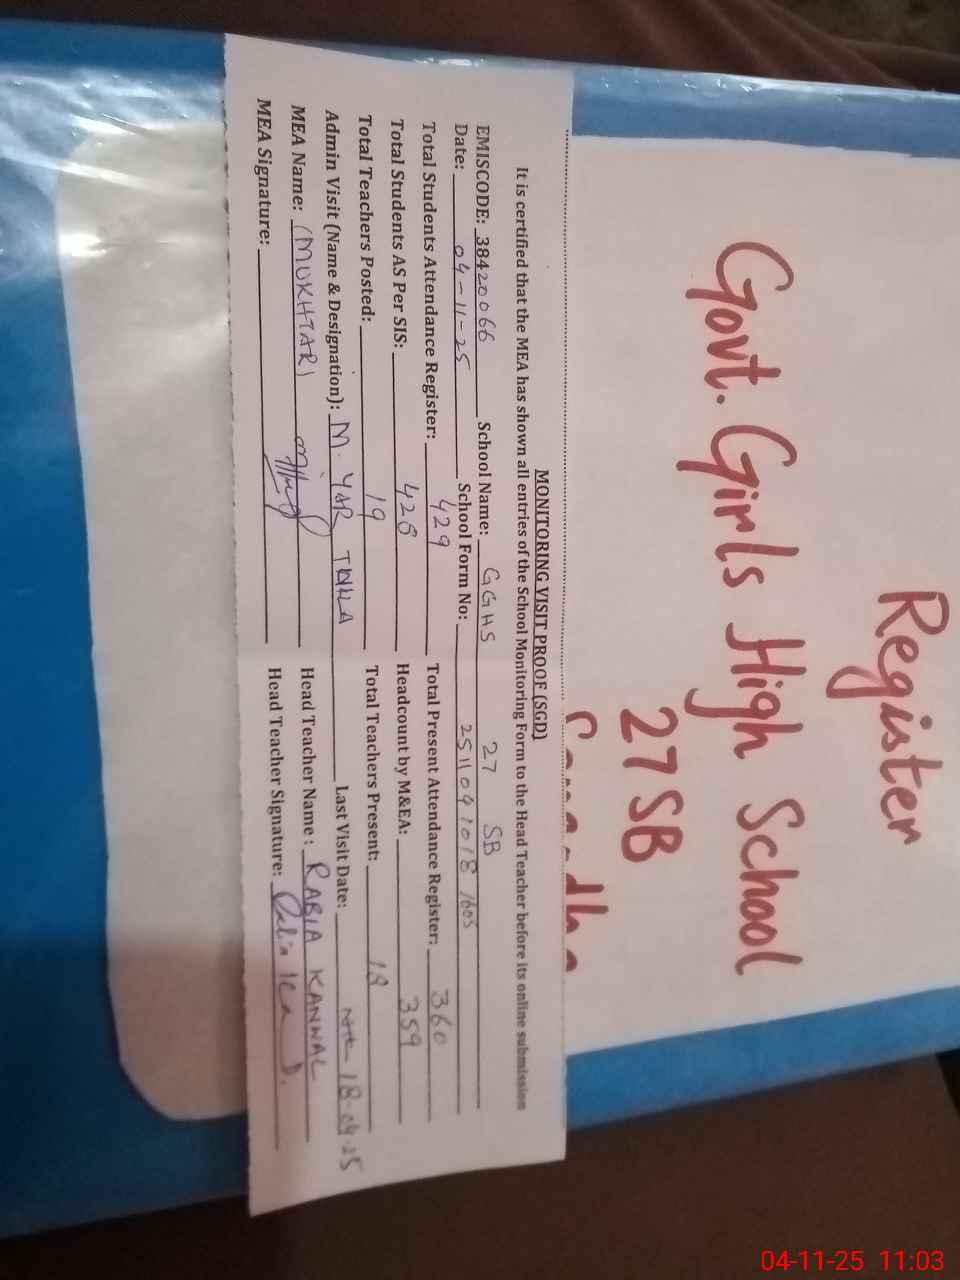 Register
Govt. Girls High School
27 SB
MONITORING VISIT PROOF (SGD)
It is certified that the MEA has shown all entries of the School Monitoring Form to the Head Teacher before its online submission
EMISCODE: 38420066 School Name: GGHS 27 SB
Date: 04-11-25 School Form No: 2511041018 1603
Total Students Attendance Register: 429 Total Present Attendance Register: 360
Total Students AS Per SIS: 428 Headcount by M&EA: 359
Total Teachers Posted: 19 Total Teachers Present: 18
Admin Visit (Name & Designation): M. YAR Last Visit Date: 18-04-25
MEA Name: (MUKHTAR) Head Teacher Name: RABIA KANWAL
MEA Signature: Head Teacher Signature:
04-11-25 11:03